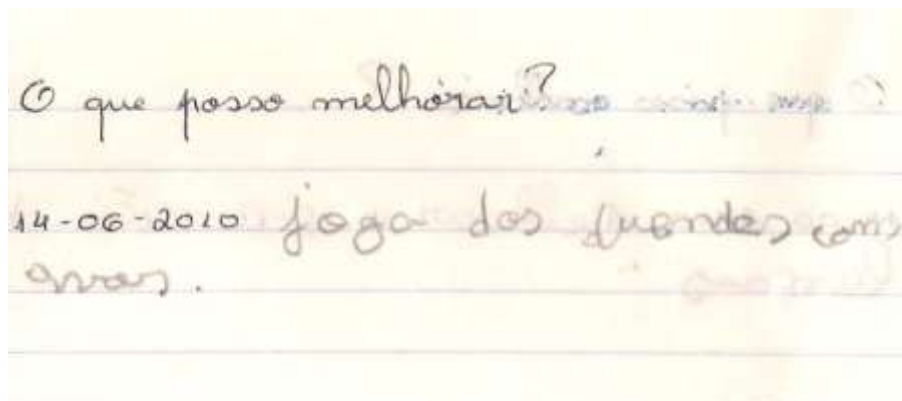 O que posso melhorar?
14-06-2010 joga dos duendes com